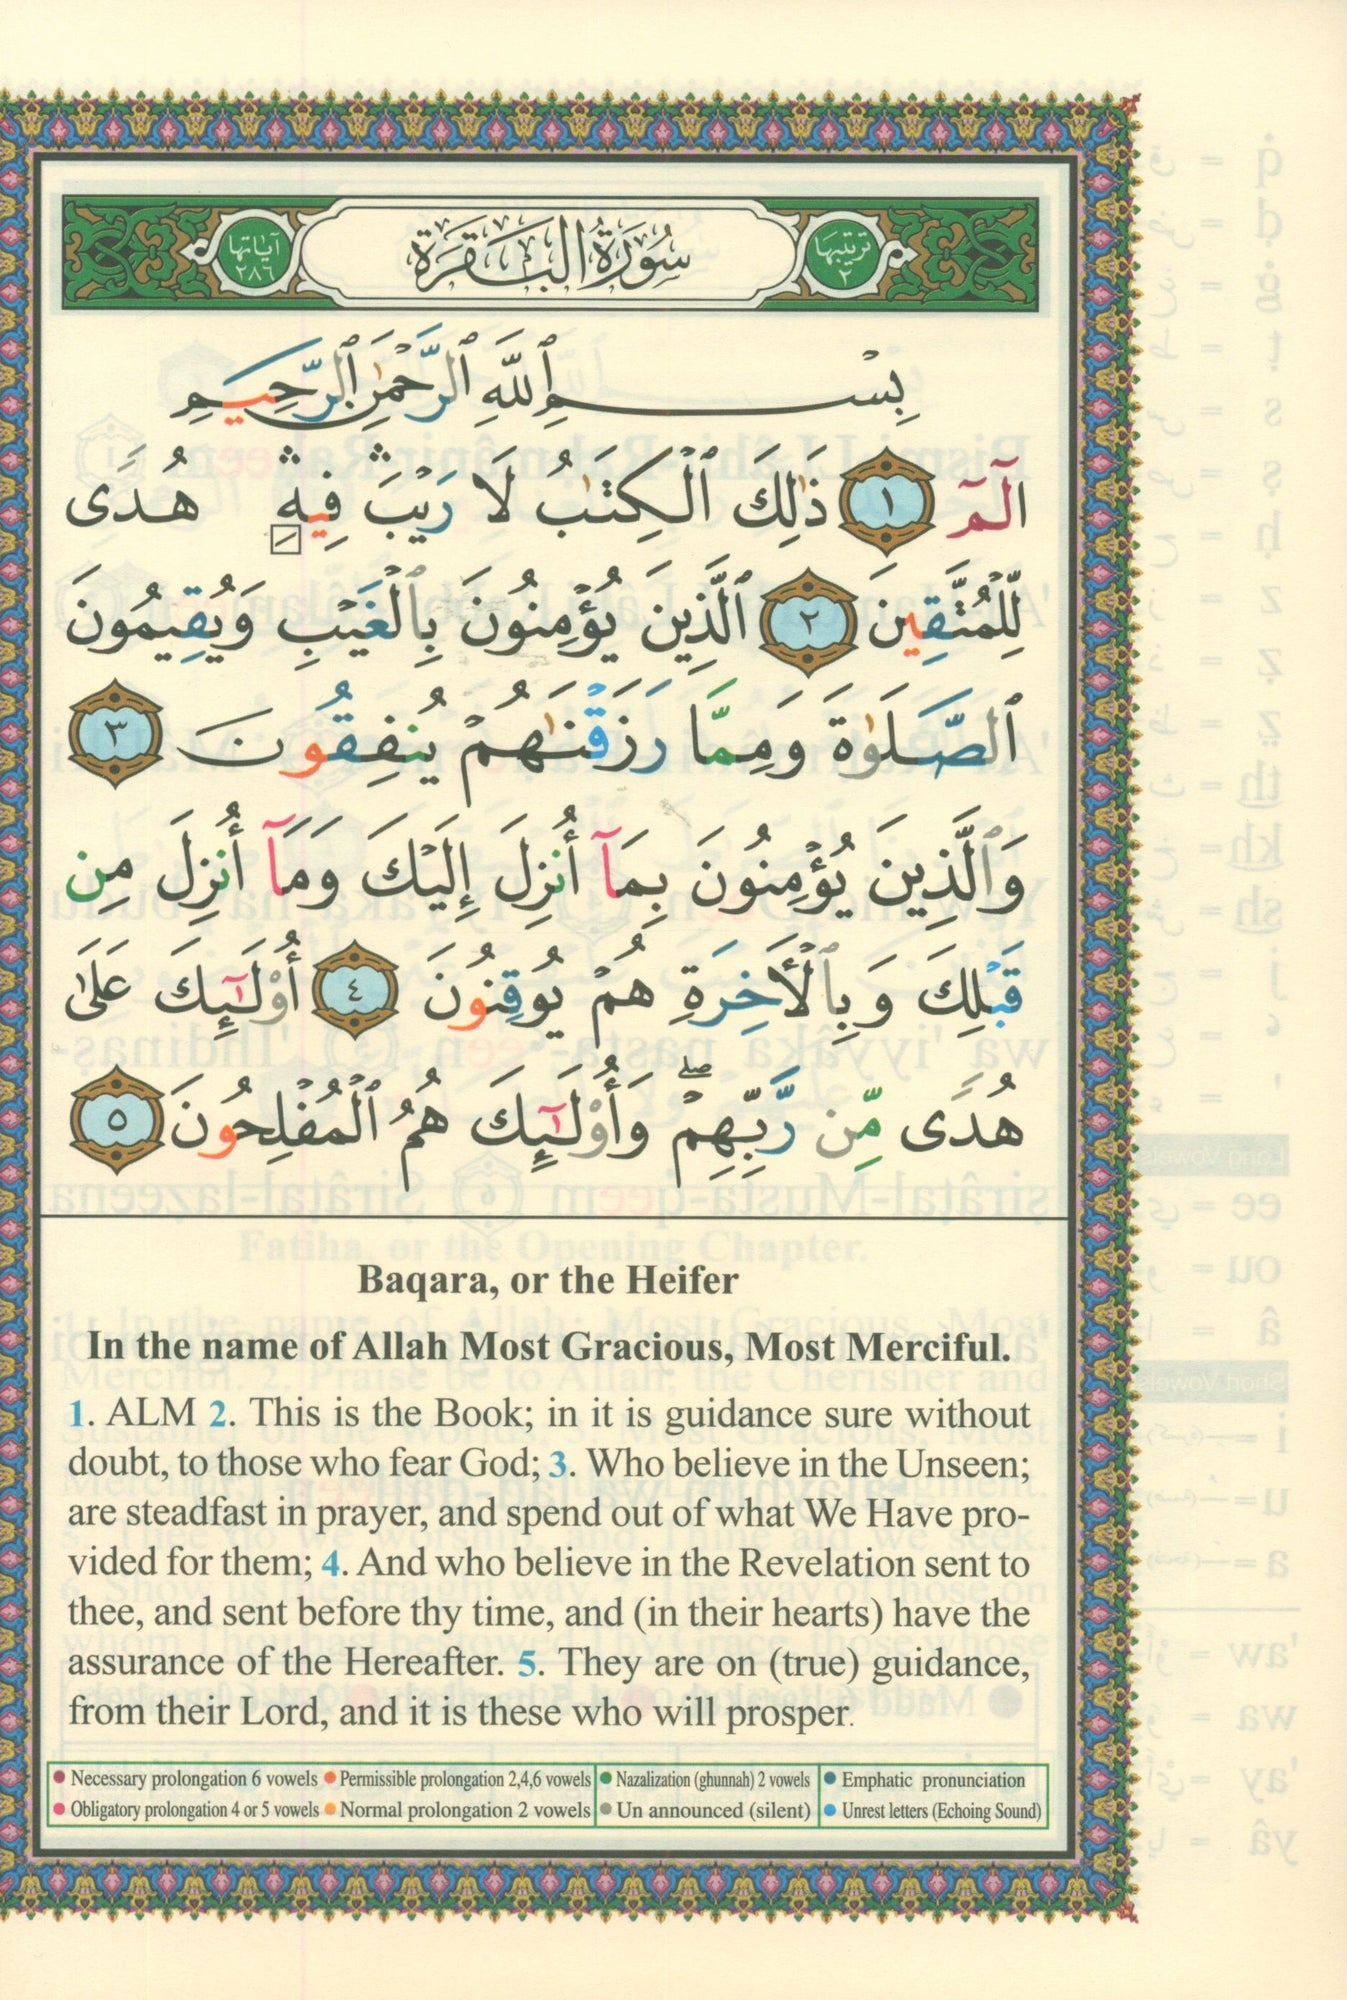 ترتيبها
٢
سُورَةُ البَقَرَة
آياتها
٢٨٦
بِسْمِ ٱللَّهِ ٱلرَّحْمَٰنِ ٱلرَّحِيمِ
الٓمٓ ١ ذَٰلِكَ ٱلْكِتَٰبُ لَا رَيْبَ ۛ فِيهِ ۛ هُدًى
لِّلْمُتَّقِينَ ٢ ٱلَّذِينَ يُؤْمِنُونَ بِٱلْغَيْبِ وَيُقِيمُونَ
ٱلصَّلَوٰةَ وَمِمَّا رَزَقْنَٰهُمْ يُنفِقُونَ ٣
وَٱلَّذِينَ يُؤْمِنُونَ بِمَآ أُنزِلَ إِلَيْكَ وَمَآ أُنزِلَ مِن
قَبْلِكَ وَبِٱلْأَخِرَةِ هُمْ يُوقِنُونَ ٤ أُوْلَٰٓئِكَ عَلَىٰ
هُدًى مِّن رَّبِّهِمْ ۖ وَأُوْلَٰٓئِكَ هُمُ ٱلْمُفْلِحُونَ ٥
Baqara, or the Heifer
In the name of Allah Most Gracious, Most Merciful.
1. ALM 2. This is the Book; in it is guidance sure without
doubt, to those who fear God; 3. Who believe in the Unseen;
are steadfast in prayer, and spend out of what We Have pro-
vided for them; 4. And who believe in the Revelation sent to
thee, and sent before thy time, and (in their hearts) have the
assurance of the Hereafter. 5. They are on (true) guidance,
from their Lord, and it is these who will prosper.
● Necessary prolongation 6 vowels ● Permissible prolongation 2,4,6 vowels ● Nazalization (ghunnah) 2 vowels ● Emphatic pronunciation
● Obligatory prolongation 4 or 5 vowels ● Normal prolongation 2 vowels ● Un announced (silent) ● Unrest letters (Echoing Sound)